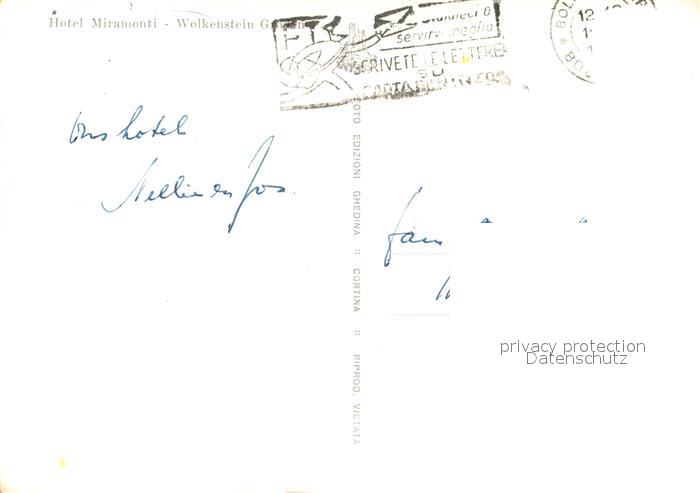 Hotel Miramonti - Wolkenstein
servirvi meglio
SCRIVETE LE LETTERE
SU
12
Ons hotel
Nellie en Jos.
FOTO EDIZIONI GHEDINA :: CORTINA :: RIPROD. VIETATA
fam
privacy protection
Datenschutz